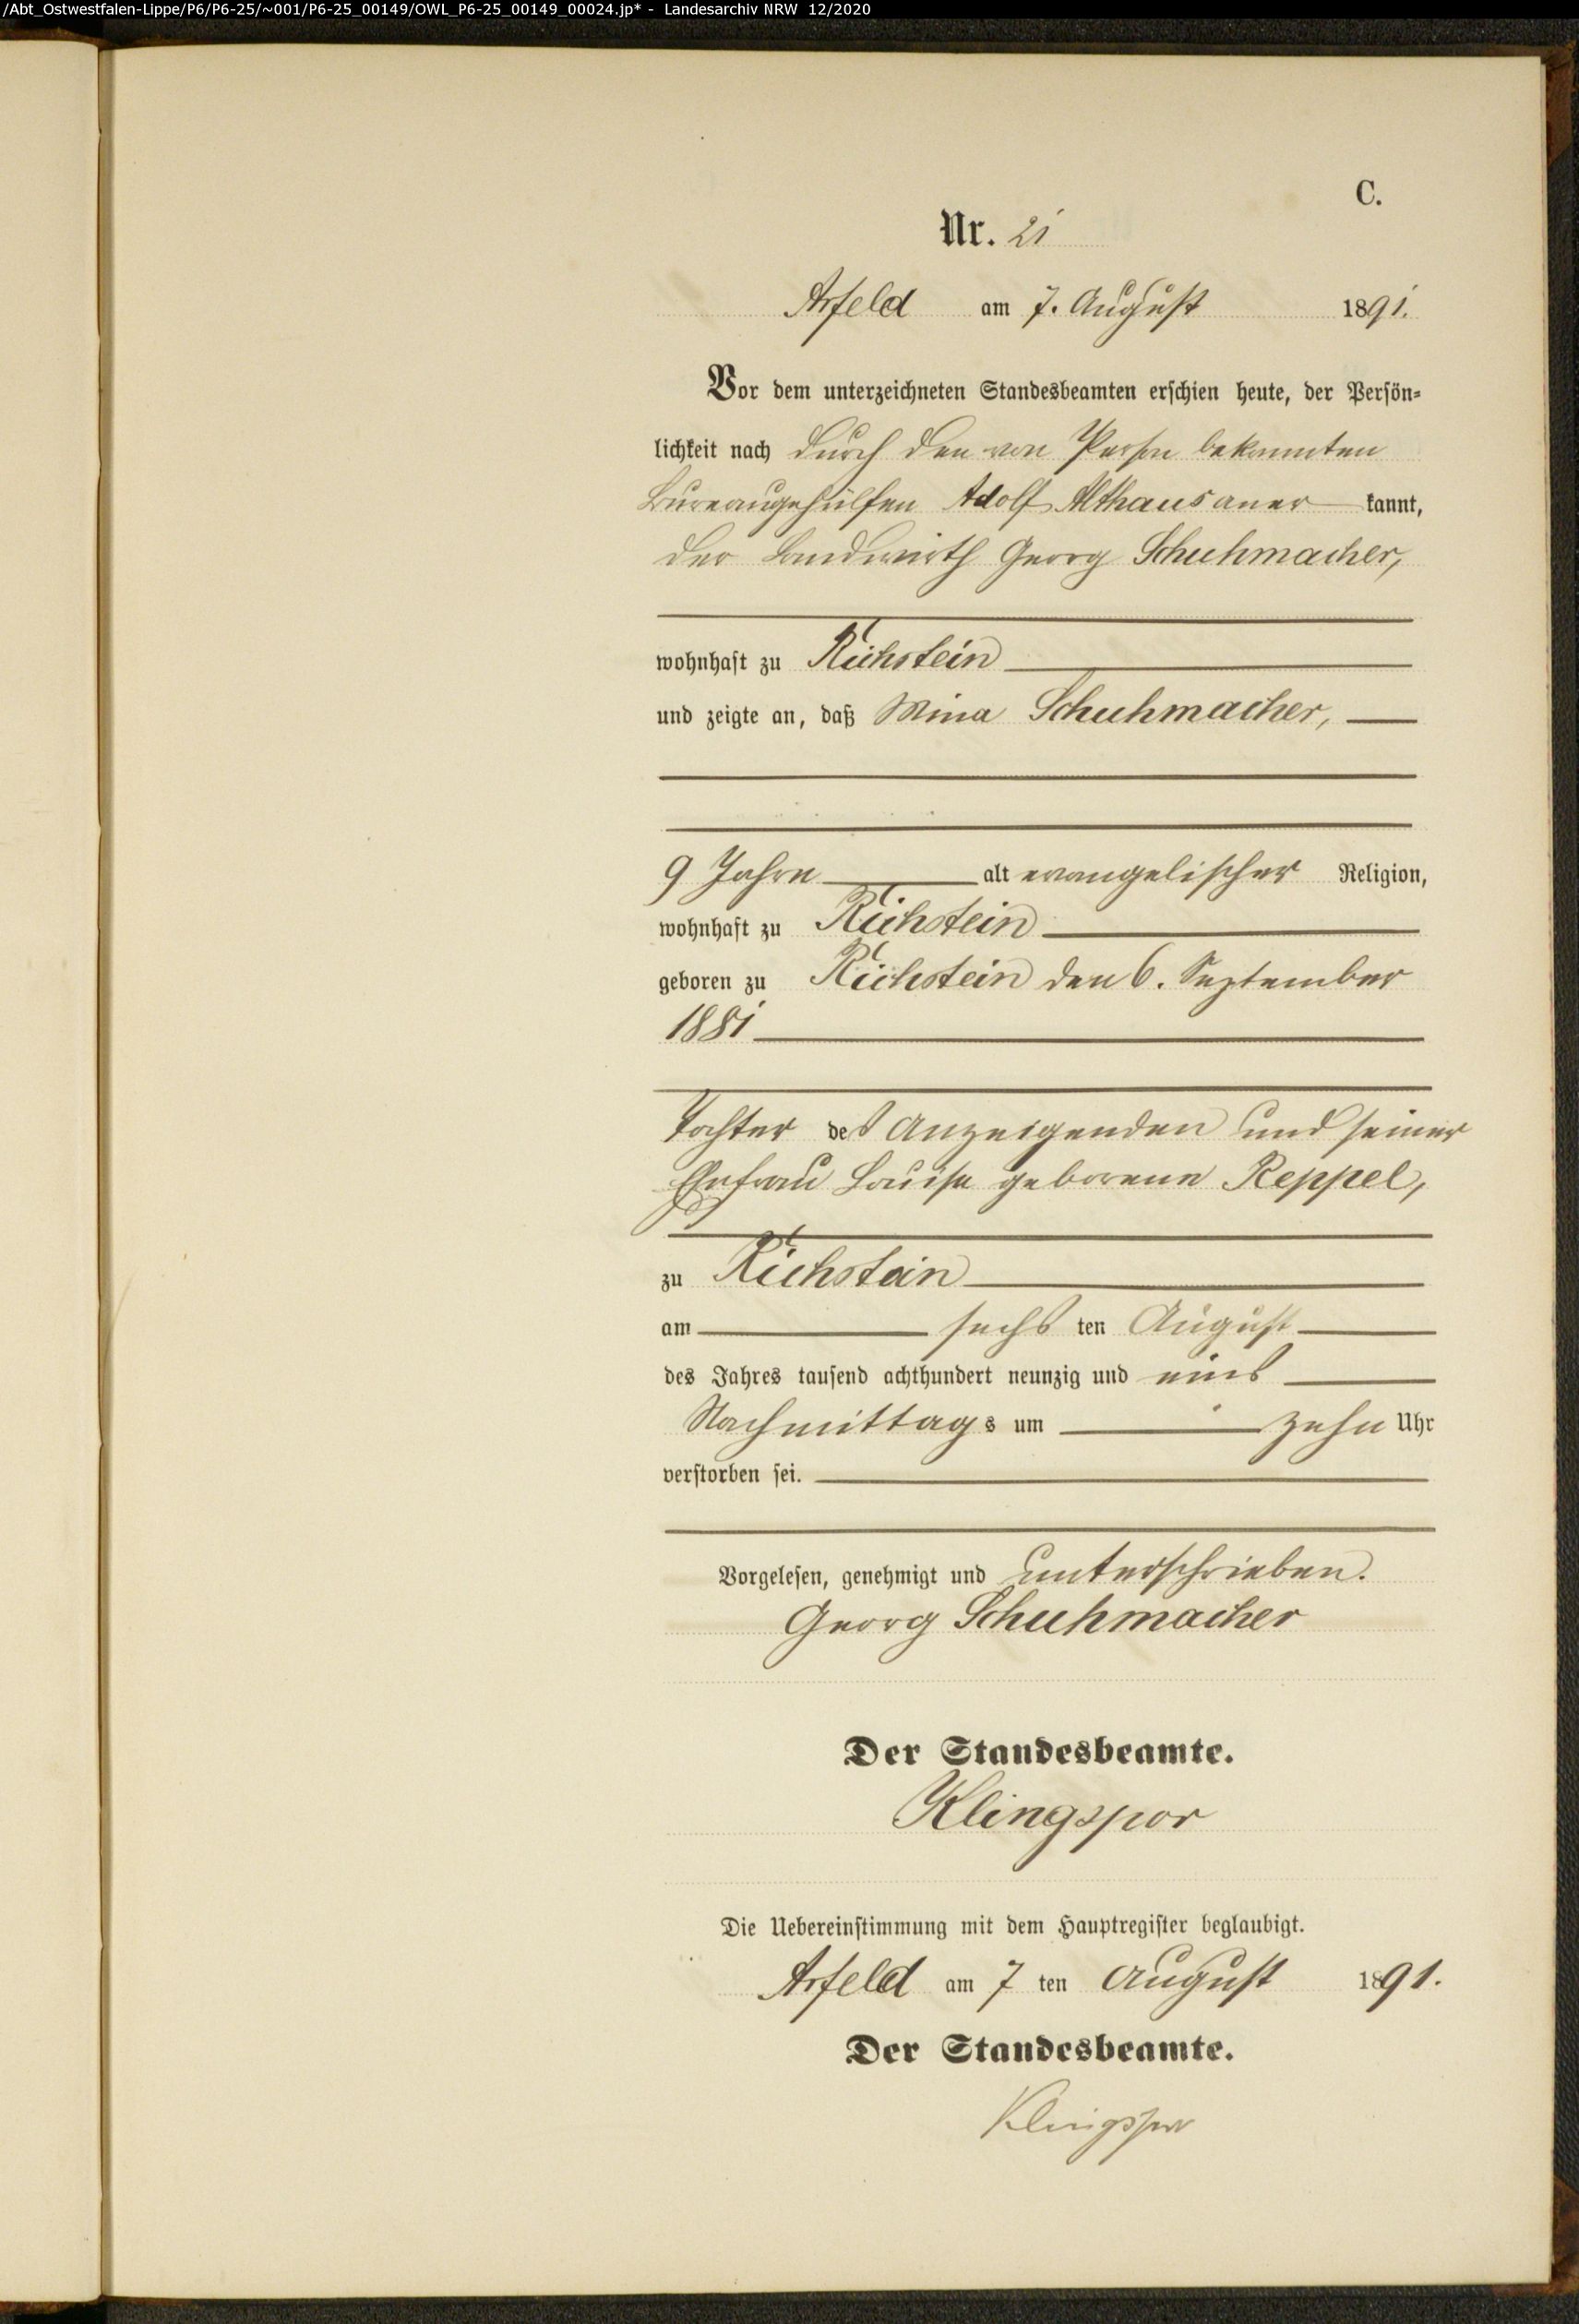 /Abt_Ostwestfalen-Lippe/P6/P6-25/~001/P6-25_00149/OWL_P6-25_00149_00024.jp* - Landesarchiv NRW 12/2020
C.
Nr. 21
Arfeld am 7. August 1891.
Vor dem unterzeichneten Standesbeamten erschien heute, der Persön-
lichkeit nach durch den von Person bekannten
Bureaugehülfen Adolf Althaus aner kannt,
der Landwirth Georg Schuhmacher,
wohnhaft zu Richstein
und zeigte an, daß Mina Schuhmacher,
9 Jahre alt evangelischer Religion,
wohnhaft zu Richstein
geboren zu Richstein den 6. September
1881
Tochter des Anzeigenden und seiner
Ehefrau Louise geborene Reppel,
zu Richstein
am sechs ten August
des Jahres tausend achthundert neunzig und eins
Nachmittags um zehn Uhr
verstorben sei.
Vorgelesen, genehmigt und unterschrieben.
Georg Schuhmacher
Der Standesbeamte.
Klingspor
Die Uebereinstimmung mit dem Hauptregister beglaubigt.
Arfeld am 7 ten August 1891.
Der Standesbeamte.
Klingspor